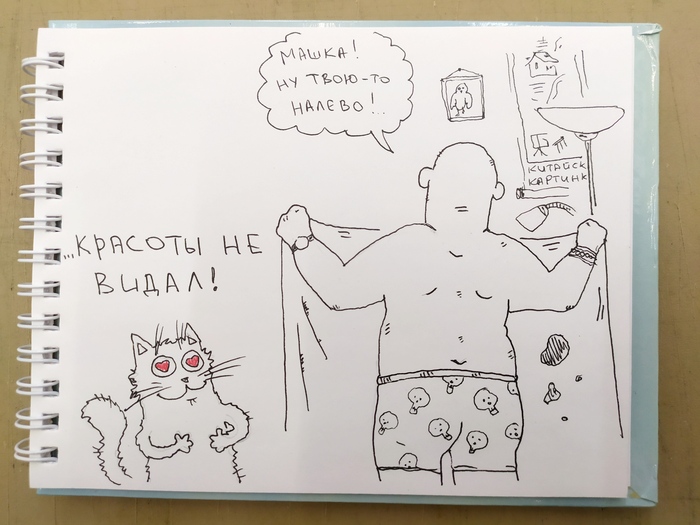 МАШКА!
НУ ТВОЮ-ТО
НАЛЕВО!..
КИТАЙСК
КАРТИНК
...КРАСОТЫ НЕ
ВИДАЛ!